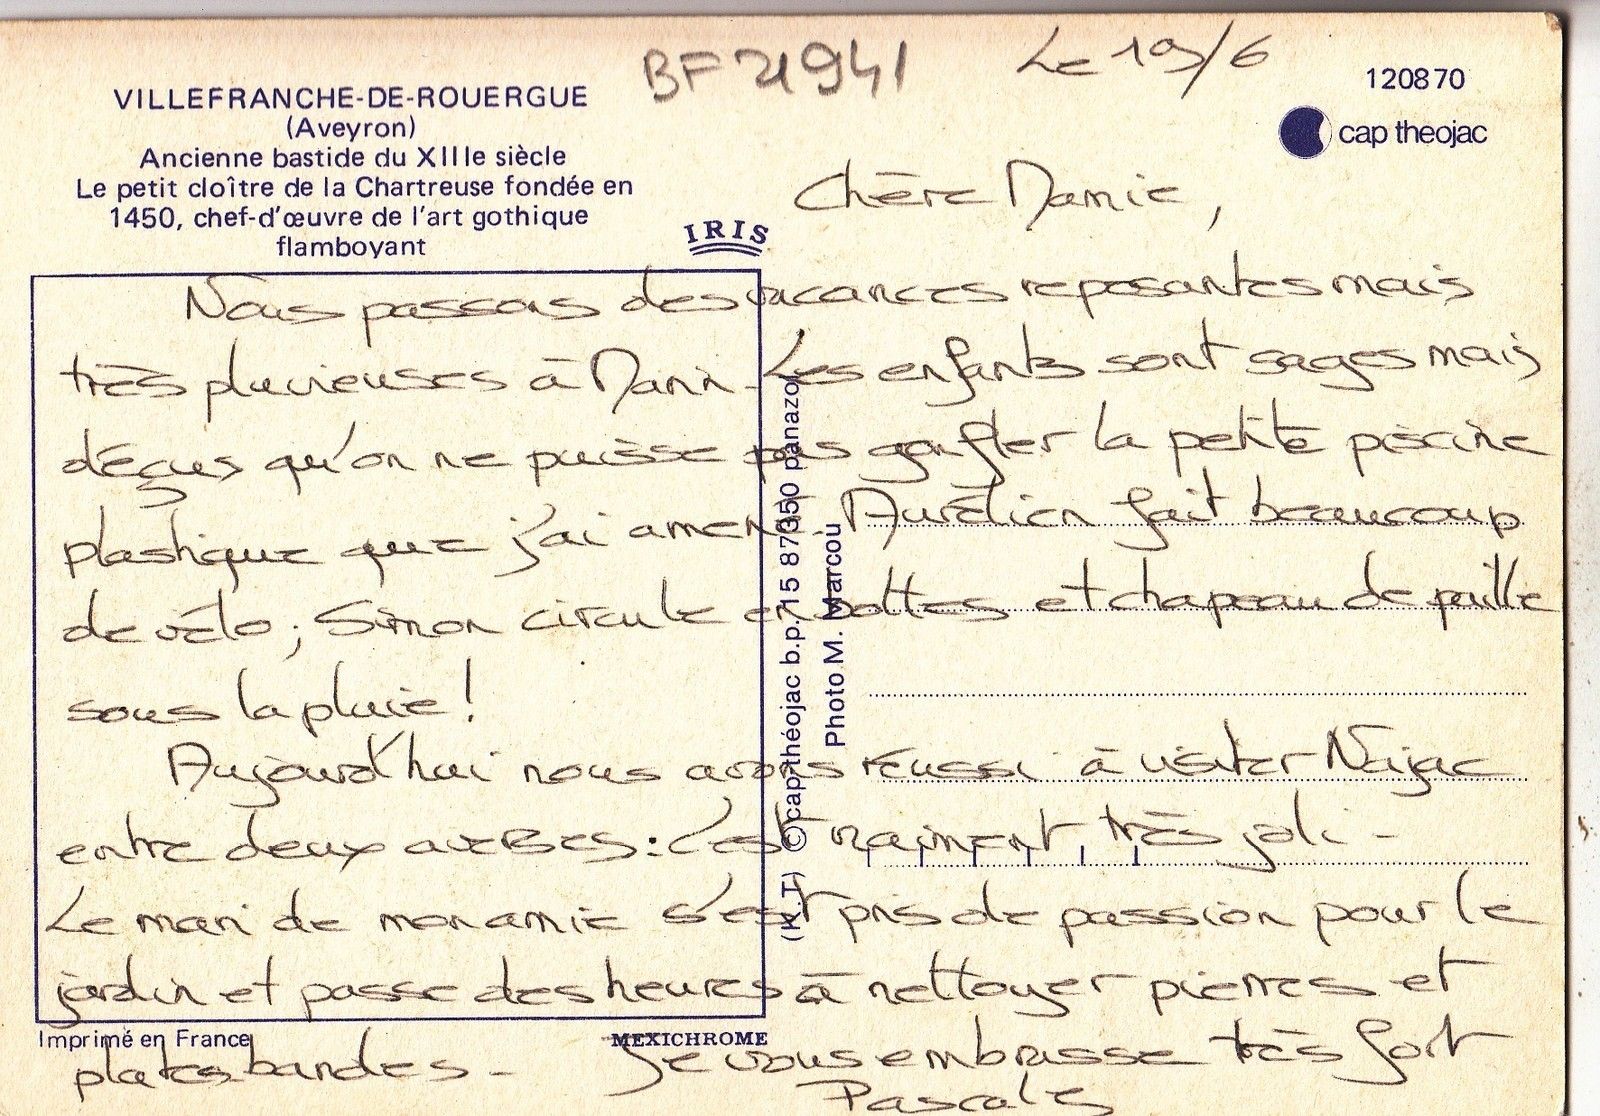 BF 21941
Le 19/6
120870
cap theojac
VILLEFRANCHE-DE-ROUERGUE
(Aveyron)
Ancienne bastide du XIIIe siècle
Le petit cloître de la Chartreuse fondée en
1450, chef-d'œuvre de l'art gothique
flamboyant
IRIS
Chère Mamie,
Nous passons des vacances reposantes mais
très pluvieuses à - Les enfants sont sages mais
déçus qu'on ne puisse pas gonfler la petite piscine
plastique que j'ai amené. Aurélien fait beaucoup
de vélo ; Simon circule en bottes et chapeau de paille
sous la pluie !
Aujourd'hui nous avons réussi à visiter Najac
entre deux averses : c'est vraiment très joli -
Le mari de mon amie s'est pris de passion pour le
jardin et passe des heures à nettoyer pierres et
plates-bandes - Je vous embrasse très fort
Pascale
(K.T) © cap-théojac b.p. 15 87350 panazol
Photo M. Marcou
Imprimé en France
MEXICHROME